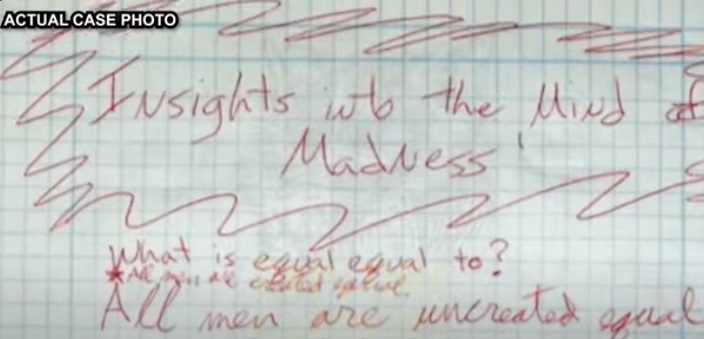 ACTUAL CASE PHOTO
Insights into the Mind of
Madness'
What is equal equal to?
*All men are created equal.
All men are uncreated equal